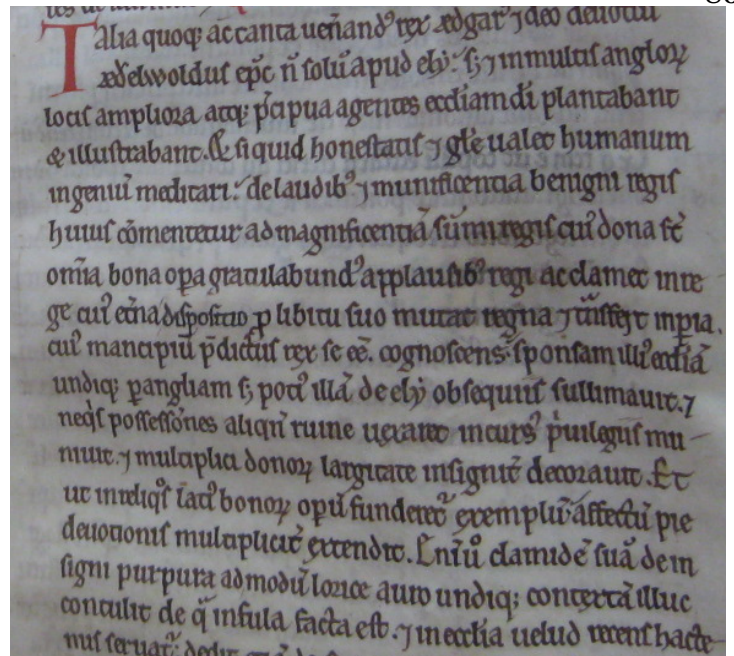 Talia quoq; ac canta uen̄and᾽ rex ædgar᾽ ⁊ deo deuotul
ædelwoldus ep̄c n̄ solū apud elẏ. s; ⁊ in multis angloꝝ
locis ampliora atq; p̄cipua agentes eccl̄iam dī plantabant
& illustrabant. Et siquid honestatis ⁊ gl̄e ualet humanum
ingeniū meditari. de laudib᾽ ⁊ munificentia benigni regis
huius cōmentetur ad magnificentiā sūmi regis cui᾽ dona st̄
om̄ia bona oꝑa gratulabund᾽ applausib᾽ regi acclamet in re
ge cui᾽ et̄na dispositio ꝓ libitu suo mutat regna ⁊ t̄nsfert inꝑia.
cui᾽ mancipiū p̄dictus rex se eē. cognoscens. sponsam illi᾽ eccl̄iā
undiq; ꝑ angliam s; poti᾽ illā de elẏ obsequiis sullimauit. ⁊
neq̇s possessōnes aliqn̄ ruine uexaret incurs᾽ ṗuilegiis mu
niuit. ⁊ multiplici donoꝝ largitate insignit̄ decorauit. Et
ut in reliq̇s iact᾽ bonoꝝ opū funderet᷑ exemplū affectū pie
deuotionis multiplicit̄ extendit. Enīū clamidē suā de in
signi purpura ad modū lorice auro undiq; contextā illuc
contulit de q̄ infula facta est. ⁊ in eccl̄ia uelud recens hacte
nus seruat᷑. dedit